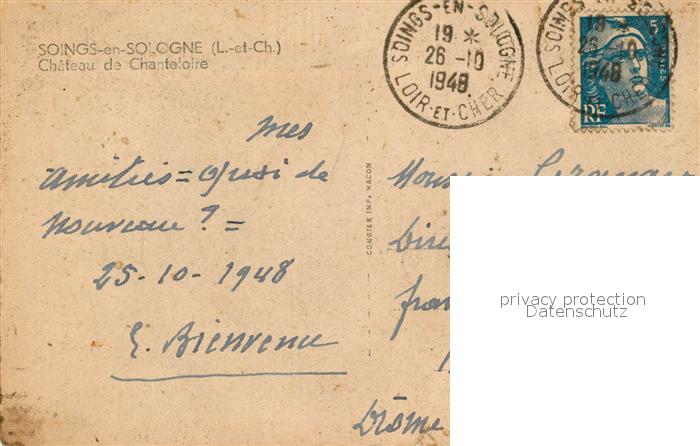 SOINGS-en-SOLOGNE (L.-et-Ch.)
Château de Chanteloire
SOINGS-EN-SOLOGNE
19 *
26 -10
1948
LOIR-ET-CHER
SOINGS
19 *
26 -10
1948
LOIR-ET-CHE
5
RF
mes
Amitiés = Quoi de
nouveau ? =
25-10-1948
E. Bienvenu
COMBIER IMP. MACON
Mons
Dire
fran
Drôme
privacy protection
Datenschutz